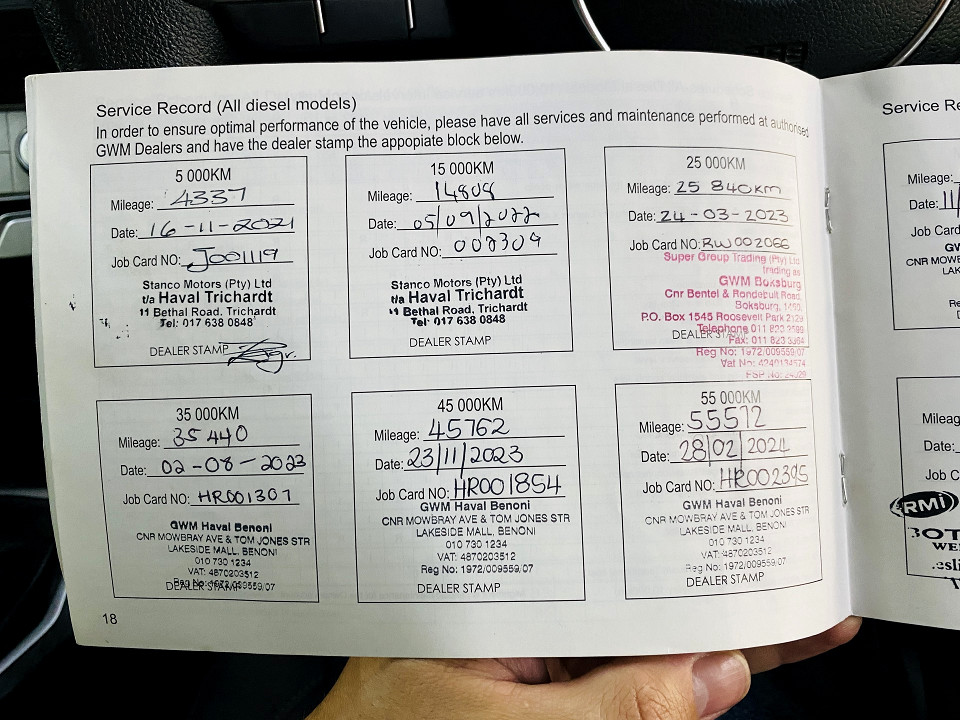 Service Record (All diesel models)
In order to ensure optimal performance of the vehicle, please have all services and maintenance performed at authorised
GWM Dealers and have the dealer stamp the appopiate block below.
5 000KM
Mileage: 4337
Date: 16-11-2021
Job Card NO: J001119
Stanco Motors (Pty) Ltd
t/a Haval Trichardt
11 Bethal Road, Trichardt
Tel: 017 638 0848
DEALER STAMP
15 000KM
Mileage: 14808
Date: 05/09/2022
Job Card NO: 002309
Stanco Motors (Pty) Ltd
t/a Haval Trichardt
11 Bethal Road, Trichardt
Tel: 017 638 0848
DEALER STAMP
25 000KM
Mileage: 25 840km
Date: 24-03-2023
Job Card NO: RW002066
Super Group Trading (Pty) Ltd
trading as
GWM Boksburg
Cnr Bentel & Rondebult Road,
Boksburg,
P.O. Box 1545 Roosevelt Park 2129
Telephone 011 823
DEALER
Fax: 011 823 3364
Reg No: 1972/009559/07
Vat No:
FSP No:
35 000KM
Mileage: 35 440
Date: 02-08-2023
Job Card NO: HR001307
GWM Haval Benoni
CNR MOWBRAY AVE & TOM JONES STR
LAKESIDE MALL, BENONI
010 730 1234
VAT: 4870203512
Reg No: 1972/009559/07
DEALER STAMP
45 000KM
Mileage: 45762
Date: 23/11/2023
Job Card NO: HR001854
GWM Haval Benoni
CNR MOWBRAY AVE & TOM JONES STR
LAKESIDE MALL, BENONI
010 730 1234
VAT: 4870203512
Reg No: 1972/009559/07
DEALER STAMP
55 000KM
Mileage: 55572
Date: 28/02/2024
Job Card NO: HR002395
GWM Haval Benoni
CNR MOWBRAY AVE & TOM JONES STR
LAKESIDE MALL, BENONI
010 730 1234
VAT: 4870203512
Reg No: 1972/009559/07
DEALER STAMP
18
Service Re
Mileage:
Date: 11/
Job Card
GW
CNR MOWB
LAKE
Re
Mileage
Date:
Job C
RMi